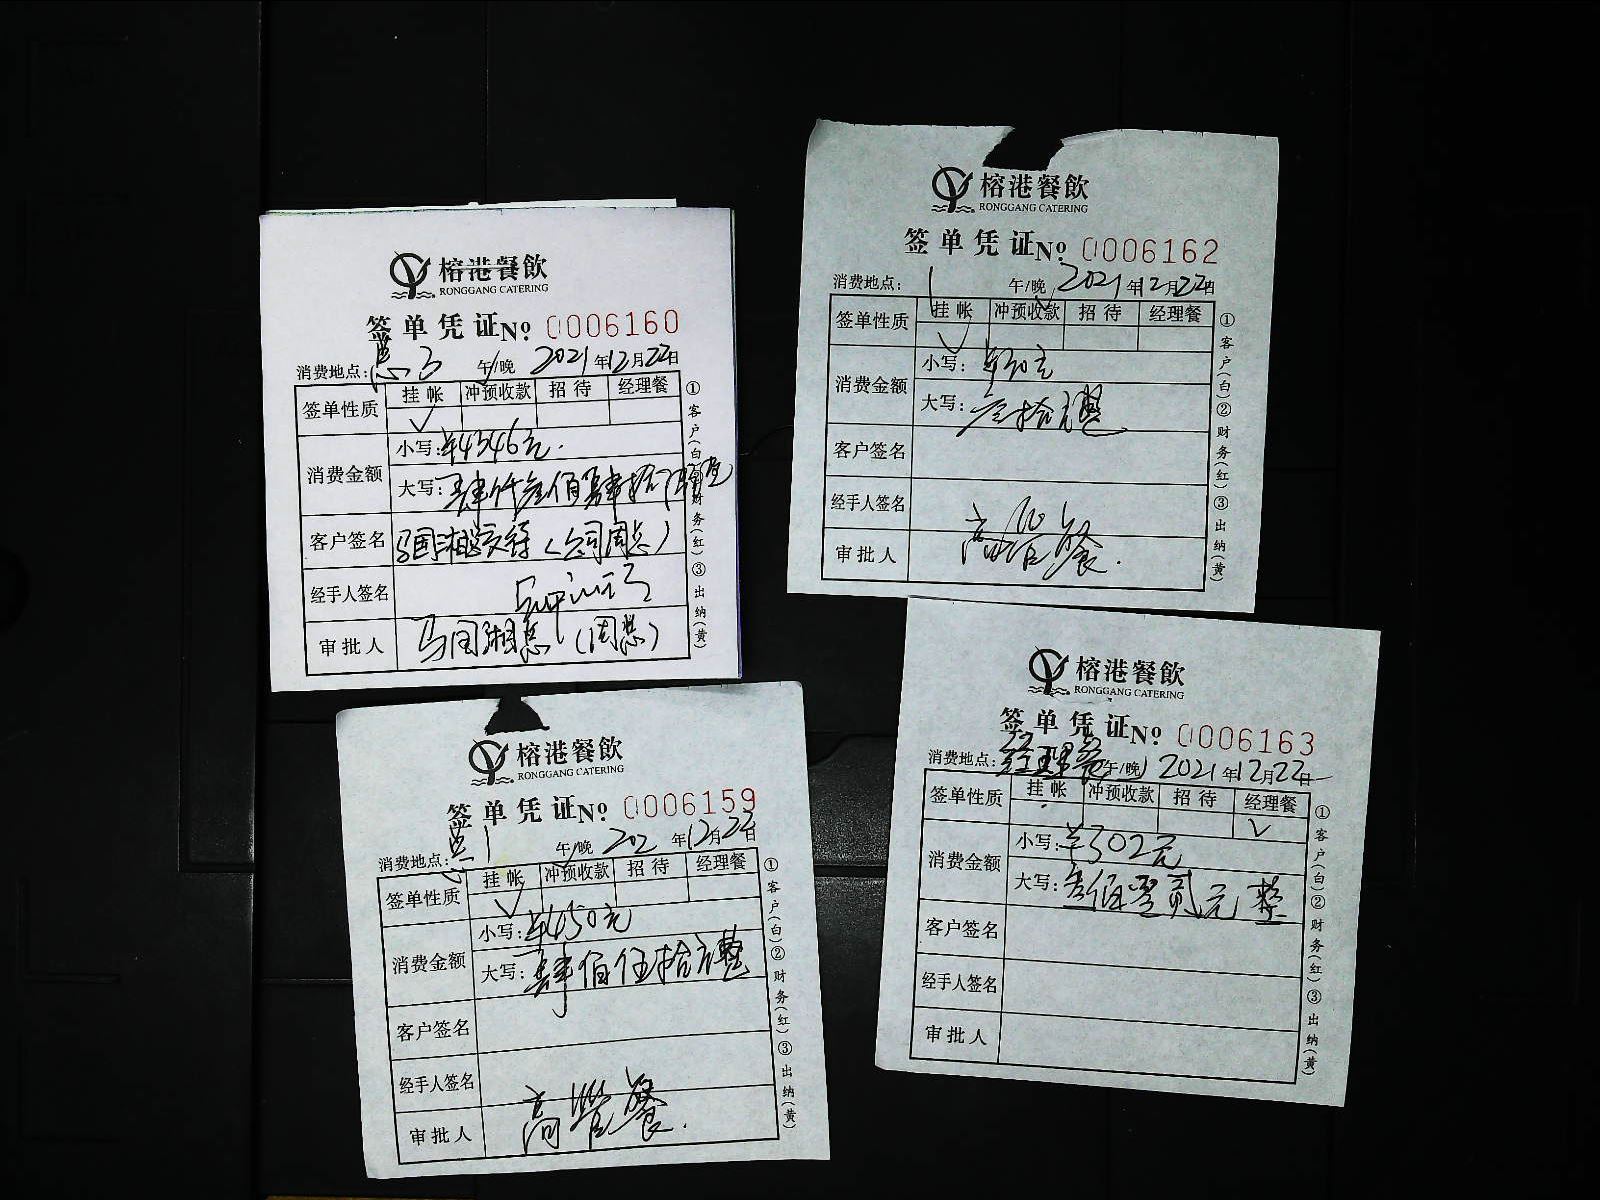 榕港餐飲
RONGGANG CATERING
签单凭证 № 0006160
消费地点: 午/晚 2021年12月22日
签单性质 挂帐 冲预收款 招待 经理餐
✓
消费金额
小写: ¥4346元.
大写: 肆仟叁佰肆拾
客户签名 马国湘总交待(公司周总)
经手人签名
审批人 马国湘总(周总)
①客户(白)②财务(红)③出纳(黄)
榕港餐飲
RONGGANG CATERING
签单凭证 № 0006162
消费地点: 午/晚 2021年12月22日
签单性质 挂帐 冲预收款 招待 经理餐
✓
消费金额
小写: ¥30元
大写: 叁拾元整
客户签名
经手人签名
审批人 高管餐.
①客户(白)②财务(红)③出纳(黄)
榕港餐飲
RONGGANG CATERING
签单凭证 № 0006159
消费地点: 午/晚 202 年12月22日
签单性质 挂帐 冲预收款 招待 经理餐
✓
消费金额
小写: ¥450元
大写: 肆佰伍拾元整
客户签名
经手人签名
审批人 高管餐.
①客户(白)②财务(红)③出纳(黄)
榕港餐飲
RONGGANG CATERING
签单凭证 № 0006163
消费地点: 经理餐 午/晚 2021年12月22日
签单性质 挂帐 冲预收款 招待 经理餐
✓
消费金额
小写: ¥302元
大写: 叁佰零贰元整
客户签名
经手人签名
审批人
①客户(白)②财务(红)③出纳(黄)